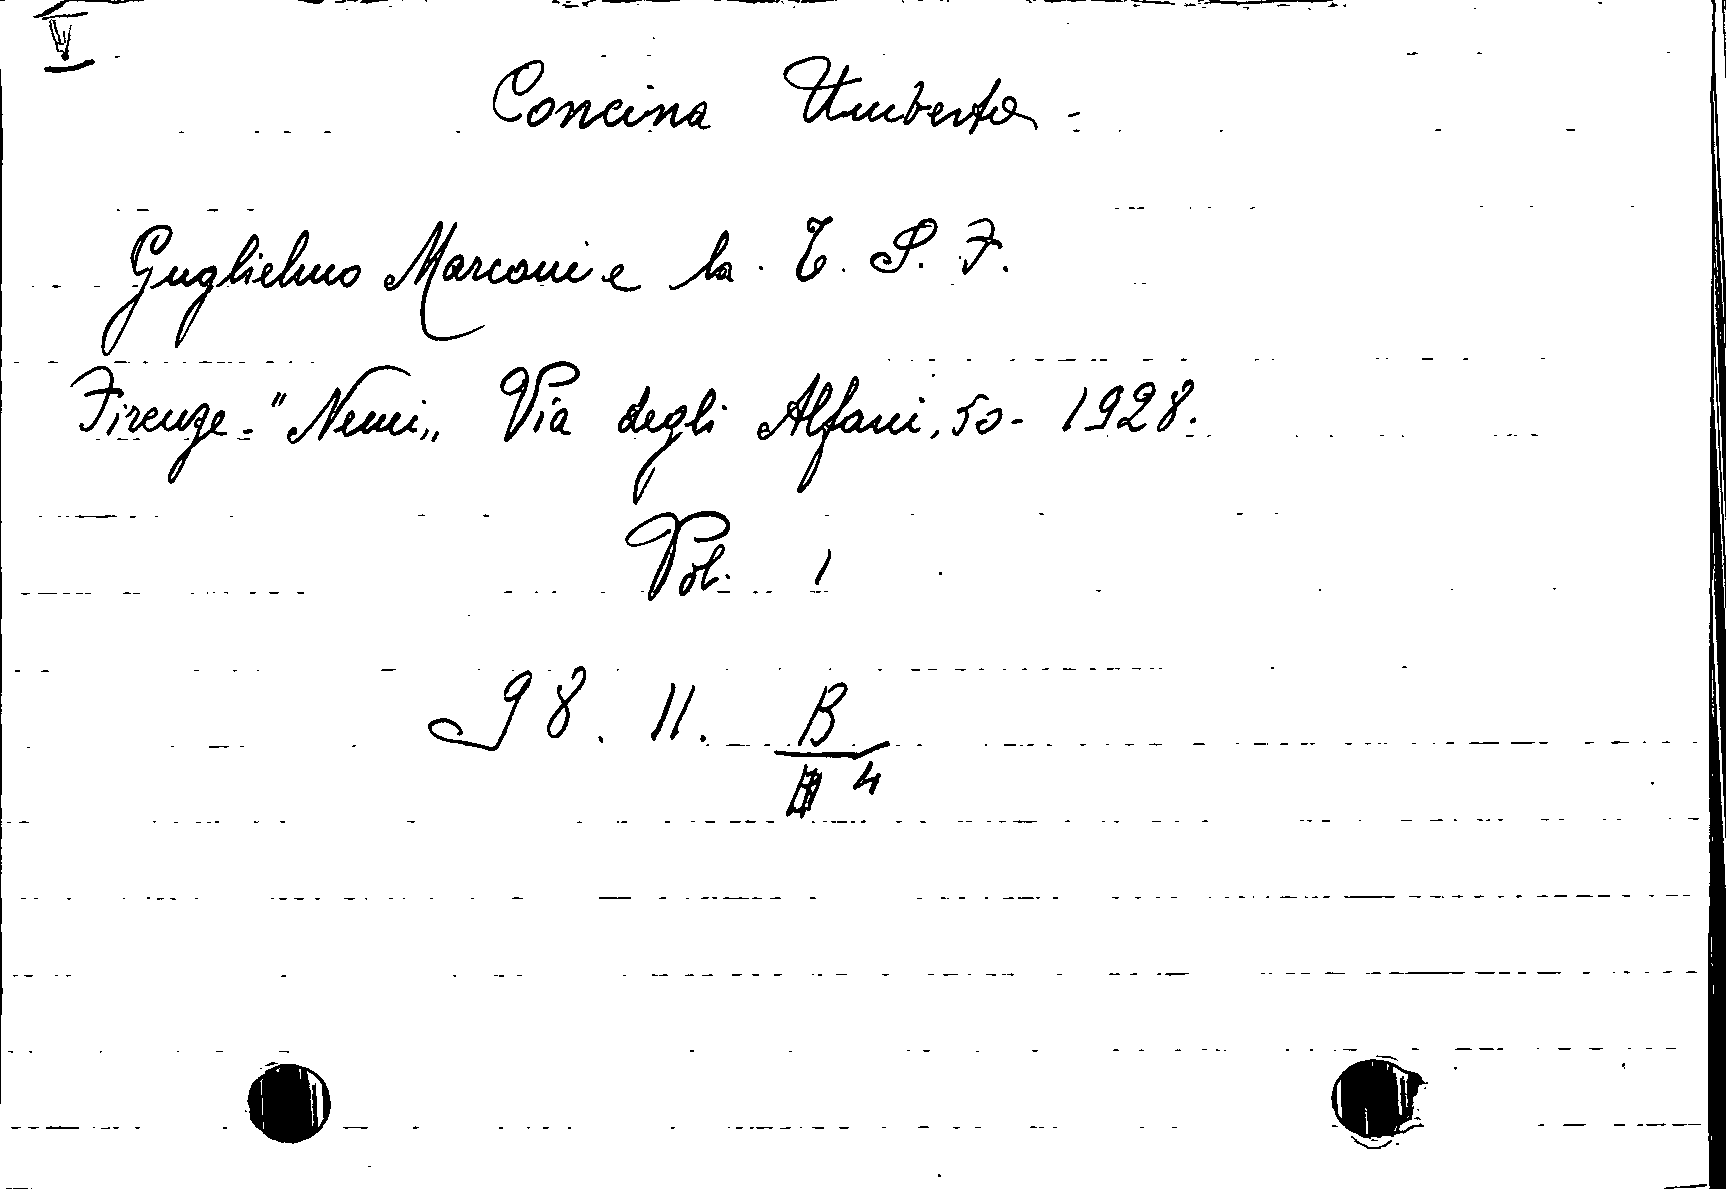 Concina Umberto -
Guglielmo Marconi e la T. S. F.
Firenze - "Nemi„ Via degli Alfani, 50 - 1928.
Vol. 1
98. II. B
4